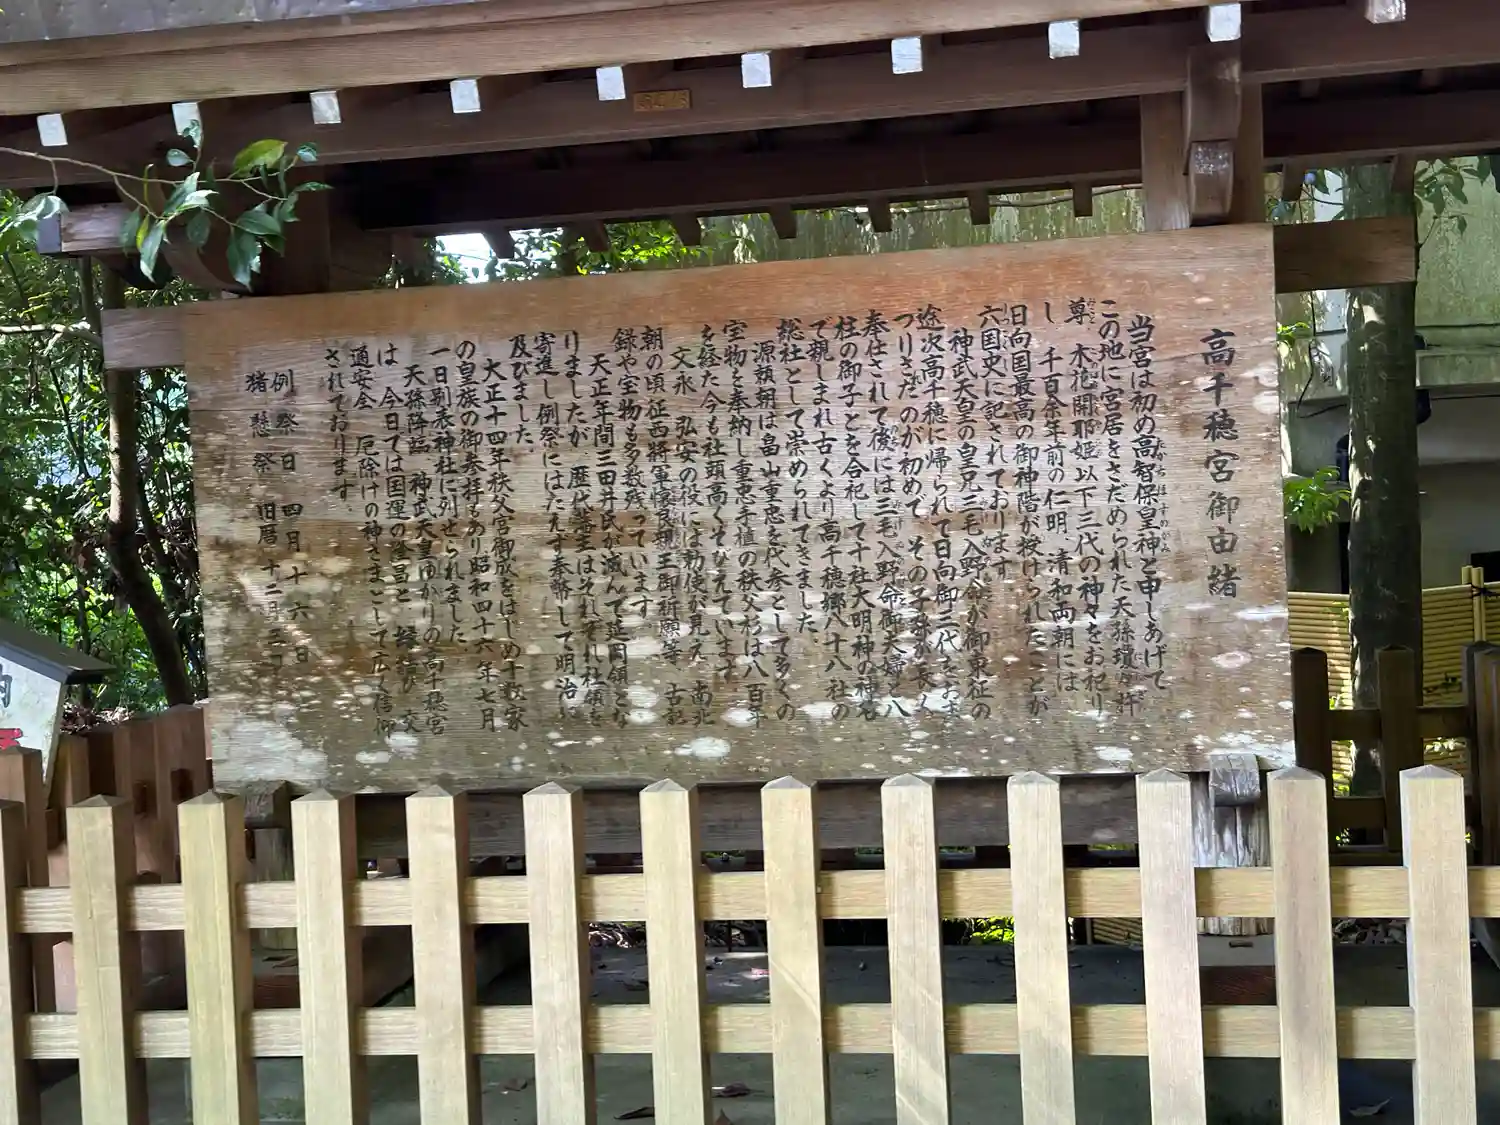 高千穂宮御由緒
当宮は初め高智保皇神と申しあげて
この地に宮居をさだめられた天孫瓊々杵
尊 木花開耶姫以下三代の神々をお祀り
し 千百余年前の仁明、清和両朝には
日向国最高の御神階が授けられたことが
六国史に記されております
神武天皇の皇兄三毛入野命が御東征の
途次高千穂に帰られて日向御三代をおま
つりさたのが初めで その子孫が長く
奉仕されて後には三毛入野命御夫婦と八
柱の御子とを合祀して十社大明神の神名
で親しまれ古くより高千穂郷八十八社の
総社として崇められてきました
源頼朝は畠山重忠を代参として多くの
宝物を奉納し重忠手植の秩父杉は八百年
を経た今も社頭高くそびえています
文永 弘安の役には勅使が見え 南北
朝の頃征西将軍懐良親王御祈願等 古記
録や宝物も多数残っています
天正年間三田井氏が滅んで延岡領とな
りましたが、歴代藩主はそれぞれ社領を
寄進し例祭にはたえず奉幣して明治に
及びました。
大正十四年秩父宮御成をはじめ十数家
の皇族の御参拝もあり昭和四十六年七月
一日別表神社に列せられました
天孫降臨 神武天皇ゆかりの高千穂宮
は 今日では国運の隆昌と 縁結び 交
通安全 厄除けの神さまとして広く信仰
されております。
例祭日 四月十六日
猪懸祭 旧暦十二月三日